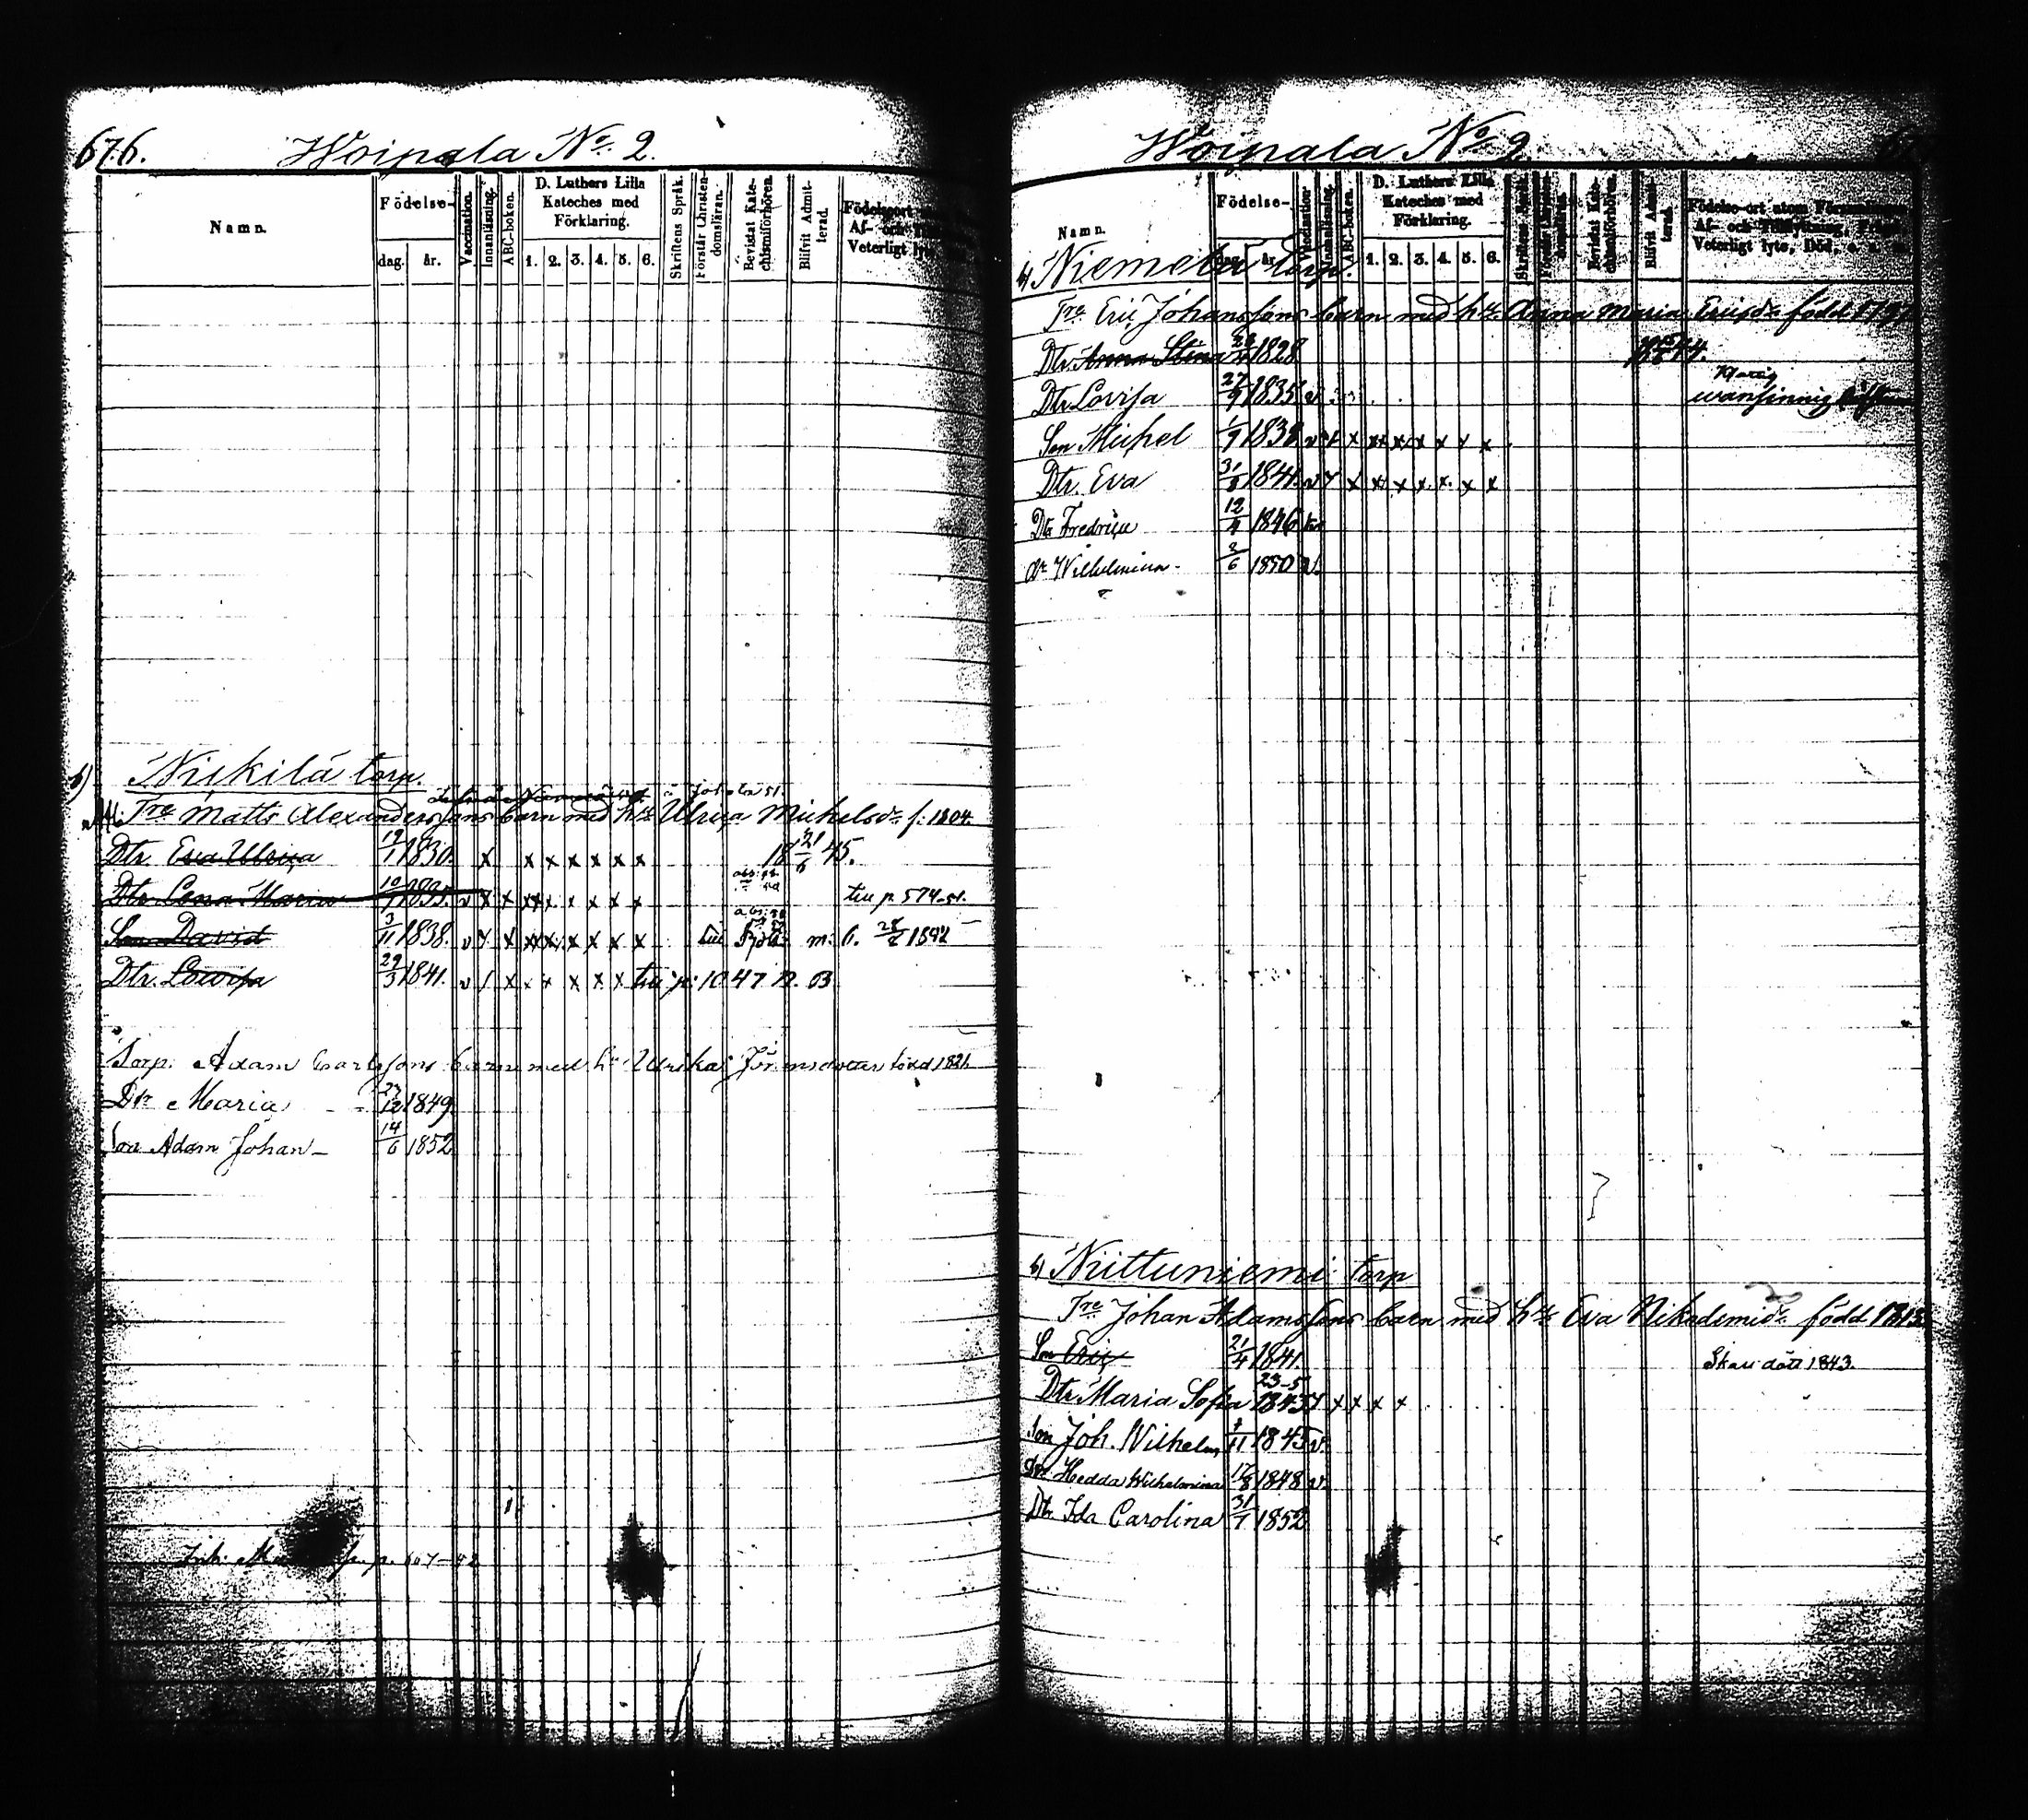 676.
Woipala No. 2.
Namn.
Födelse-
dag.
år.
Vaccination.
Innanläsning.
ABC-boken.
D. Luthers Lilla
Kateches med
Förklaring.
1. 2. 3. 4. 5. 6.
Skriftens Språk.
Förstår Christen-
domsläran.
Bevistat Kate-
chismiförhören.
Blifvit Admit-
terad.
Födelseort
Af- och
Veterligt lyte
b) Niskilä torp.
Tre Matts Alexanderssons barn med h:u Ulrica Michelsdr f. 1804.
Dtr. Eva Ulrica 19/1 1830. x x x x x x x 18 21/6 45.
Dtr. Lena Maria 10/1 1835. v x x xx x x x x x till p. 574-51.
Son David 3/11 1838. v x x x x x x x m: b. 1842
Dtr. Lovisa 29/3 1841. v x x x x x till p: 1047 N. B
Torp. Adam Carlssons barn med h:u Ulrika född 1821
Dtr Maria 23/12 1849.
Son Adam Johan 14/6 1852
p. 607-42
Woipala No 2
Namn.
Födelse-
dag.
år.
Vaccination.
Innanläsning.
ABC-boken.
D. Luthers Lilla
Kateches med
Förklaring.
1. 2. 3. 4. 5. 6.
Blifvit Admit-
terad.
Födelse-ort utom Församlingen
Af- och Tillflyttning, Frejd
Veterligt lyte, Död,
b) Niemelä torp.
Tre Eric Johanssons barn med h:u Anna Maria Ericsdr född
Dtr. Anna Stina 1828
Dtr Lovisa 27/9 1835 v wansinnig
Son Michel 1/9 1838 v x x xx x x x x
Dtr. Eva 31/8 1841. v x x x x x x
Dtr Fredrica 12/4 1846
Dr Wilhelmina 2/6 1850 v.
b) Niittuniemi torp
Tre Johan Adamssons barn med h:u Eva Nikodemidr född 1813
Son Eric 21/4 1841. Skall dött 1843.
Dtr Maria Sofia 23-5 1843 x x x x
Son Joh. Wilhelm 11 1845 v.
Dtr Hedda Wilhelmina 17/8 1848 v.
Dtr Ida Carolina 31/7 1852